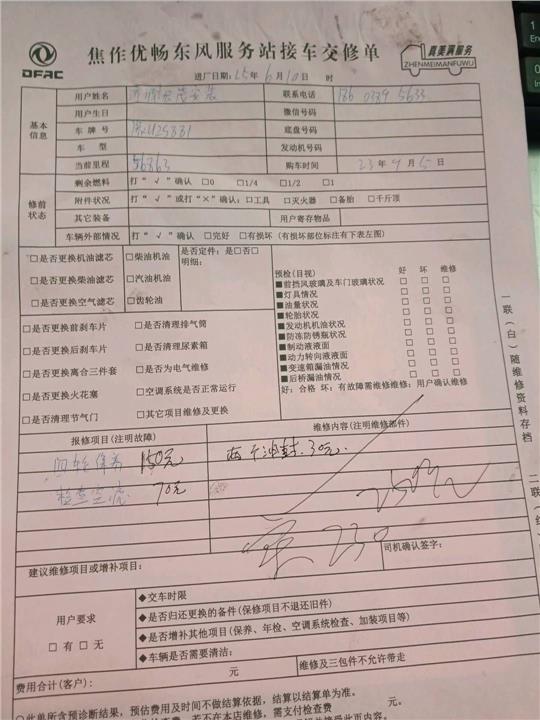 DFAC
焦作优畅东风服务站接车交修单
真美满服务
ZHENMEIMANFUWU
进厂日期:25年6月10日 时
基本信息
用户姓名 联系电话 186 0389 5633
用户生日 微信号码
车牌号 底盘号码
车型 发动机号码
当前里程 56863 购车时间 23年9月5日
修前状态
剩余燃料 打“√”确认 □0 □1/4 □1/2 □1
附件状况 打“√”或打“×”确认:□工具 □灭火器 □备胎 □千斤顶
其它装备 用户寄存物品
车辆外部情况 打“√”确认 □完好 □有损坏(有损坏部位标注有下表左图)
□是否更换机油滤芯 □柴油机油 是否定件:是□否□
明细:
□是否更换柴油滤芯 □汽油机油
□是否更换空气滤芯 □齿轮油
预检(目视) 好 坏 维修
■前挡风玻璃及车门玻璃状况 □ □ □
■灯具情况 □ □ □
■油量状况 □ □ □
■轮胎状况 □ □ □
■发动机机油状况 □ □ □
■防冻防锈瓶状况 □ □ □
■制动液液面 □ □ □
■动力转向液液面 □ □ □
■变速箱漏油情况 □ □ □
■后桥漏油情况 □ □ □
好:合格 坏:有故障需维修维修:用户确认维修
□是否更换前刹车片 □是否清理排气筒
□是否更换后刹车片 □是否清理尿素箱
□是否更换离合三件套 □是否为电气维修
□是否更换火花塞 □空调系统是否正常运行
□是否清理节气门 □其它项目维修及更换
报修项目(注明故障) 维修内容(注明维修部件)
保养 150元 两个油封.30元.
检查 70元
230
司机确认签字:
建议维修项目或增补项目:
用户要求
□有 □无
◆交车时限
◆是否归还更换的备件(保修项目不退还旧件)
◆是否增补其他项目(保养、年检、空调系统检查、加装项目等)
◆车辆是否需要清洁:
费用合计(客户): 元 维修及三包件不允许带走
○此单所含预诊断结果,预估费用及时间不做结算依据,结算以结算单为准。
若不在本店维修,需支付检查费 元。
一联(白)随维修资料存档